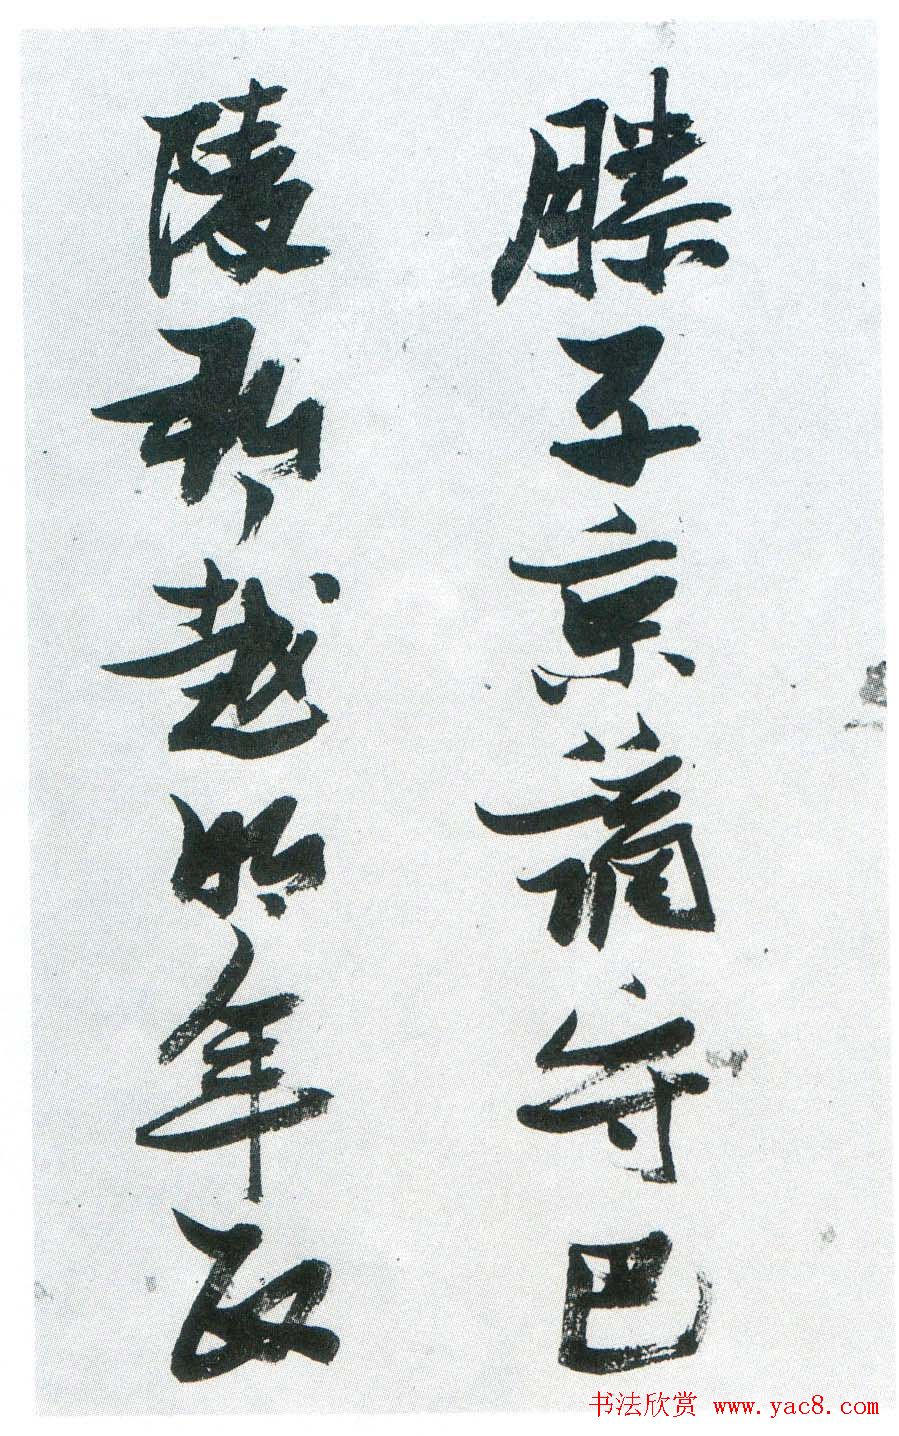 滕子京谪守巴
陵郡越明年政
书法欣赏 www.yac8.com